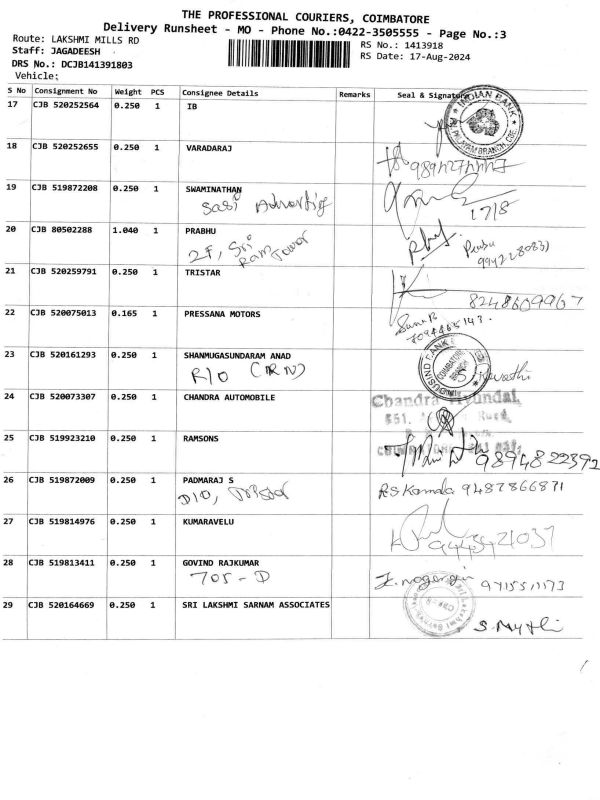 THE PROFESSIONAL COURIERS, COIMBATORE
Delivery Runsheet - MO - Phone No.:0422-3505555 - Page No.:3
Route: LAKSHMI MILLS RD
Staff: JAGADEESH
DRS No.: DCJB141391803
Vehicle:
RS No.: 1413918
RS Date: 17-Aug-2024
S No Consignment No Weight PCS Consignee Details Remarks Seal & Signature
17 CJB 520252564 0.250 1 IB
INDIAN BANK
18 CJB 520252655 0.250 1 VARADARAJ
19 CJB 519872208 0.250 1 SWAMINATHAN
Sasi
17/8
20 CJB 80502288 1.040 1 PRABHU
2F, Sri
Ram Tower
21 CJB 520259791 0.250 1 TRISTAR
8248609967
22 CJB 520075013 0.165 1 PRESSANA MOTORS
23 CJB 520161293 0.250 1 SHANMUGASUNDARAM ANAD
R/O
Revathi
24 CJB 520073307 0.250 1 CHANDRA AUTOMOBILE
Chandra Hyundai
25 CJB 519923210 0.250 1 RAMSONS
9894822392
26 CJB 519872009 0.250 1 PADMARAJ S
D/O,
9487866871
27 CJB 519814976 0.250 1 KUMARAVELU
28 CJB 519813411 0.250 1 GOVIND RAJKUMAR
705 - D
29 CJB 520164669 0.250 1 SRI LAKSHMI SARNAM ASSOCIATES